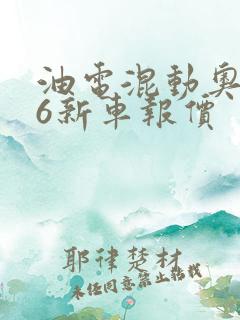 油電混動奧
6新車報價
耶律楚材
未经同意禁止转载